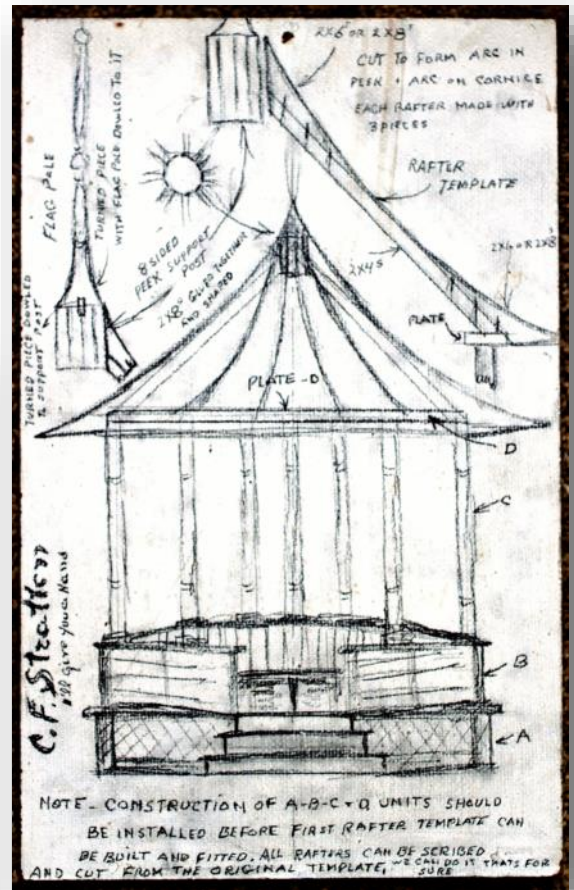 2X6" OR 2X8"
CUT TO FORM ARC IN
PEEK + ARC ON CORNICE
EACH RAFTER MADE WITH
3 PIECES
RAFTER
TEMPLATE
2X4S
2X6 OR 2X8S
PLATE
FLAG POLE
TURNED PIECE
WITH FLAG POLE DOWLED TO IT
8 SIDED
PEEK SUPPORT
POST
2X8S GLUED TOGETHER
AND SHAPED
TURNED PIECE DOWLED
TO SUPPORT POST
PLATE - D
D
C
B
A
C.F. Stratton
I'll Give You a Hand
NOTE - CONSTRUCTION OF A-B-C + D UNITS SHOULD
BE INSTALLED BEFORE FIRST RAFTER TEMPLATE CAN
BE BUILT AND FITTED. ALL RAFTERS CAN BE SCRIBED
AND CUT FROM THE ORIGINAL TEMPLATE, WE CAN DO IT THATS FOR
SURE